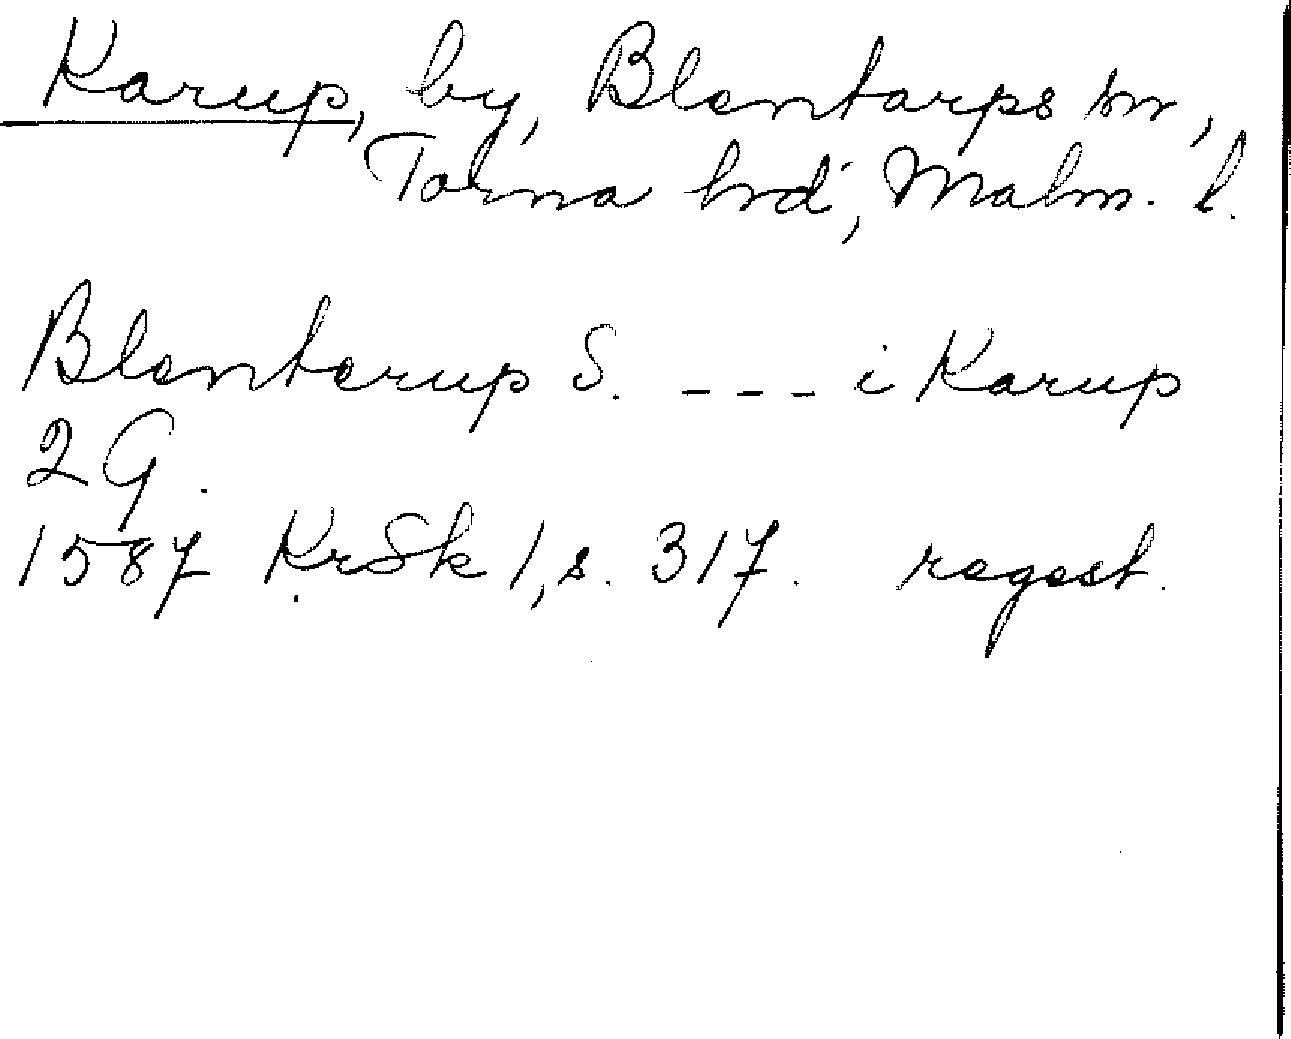 Karup, by, Blentarps sn,
Torna hrd, Malm. l.
Blentarup S. --- i Karup
2 G.
1587 KrSk 1, s. 317. regest.